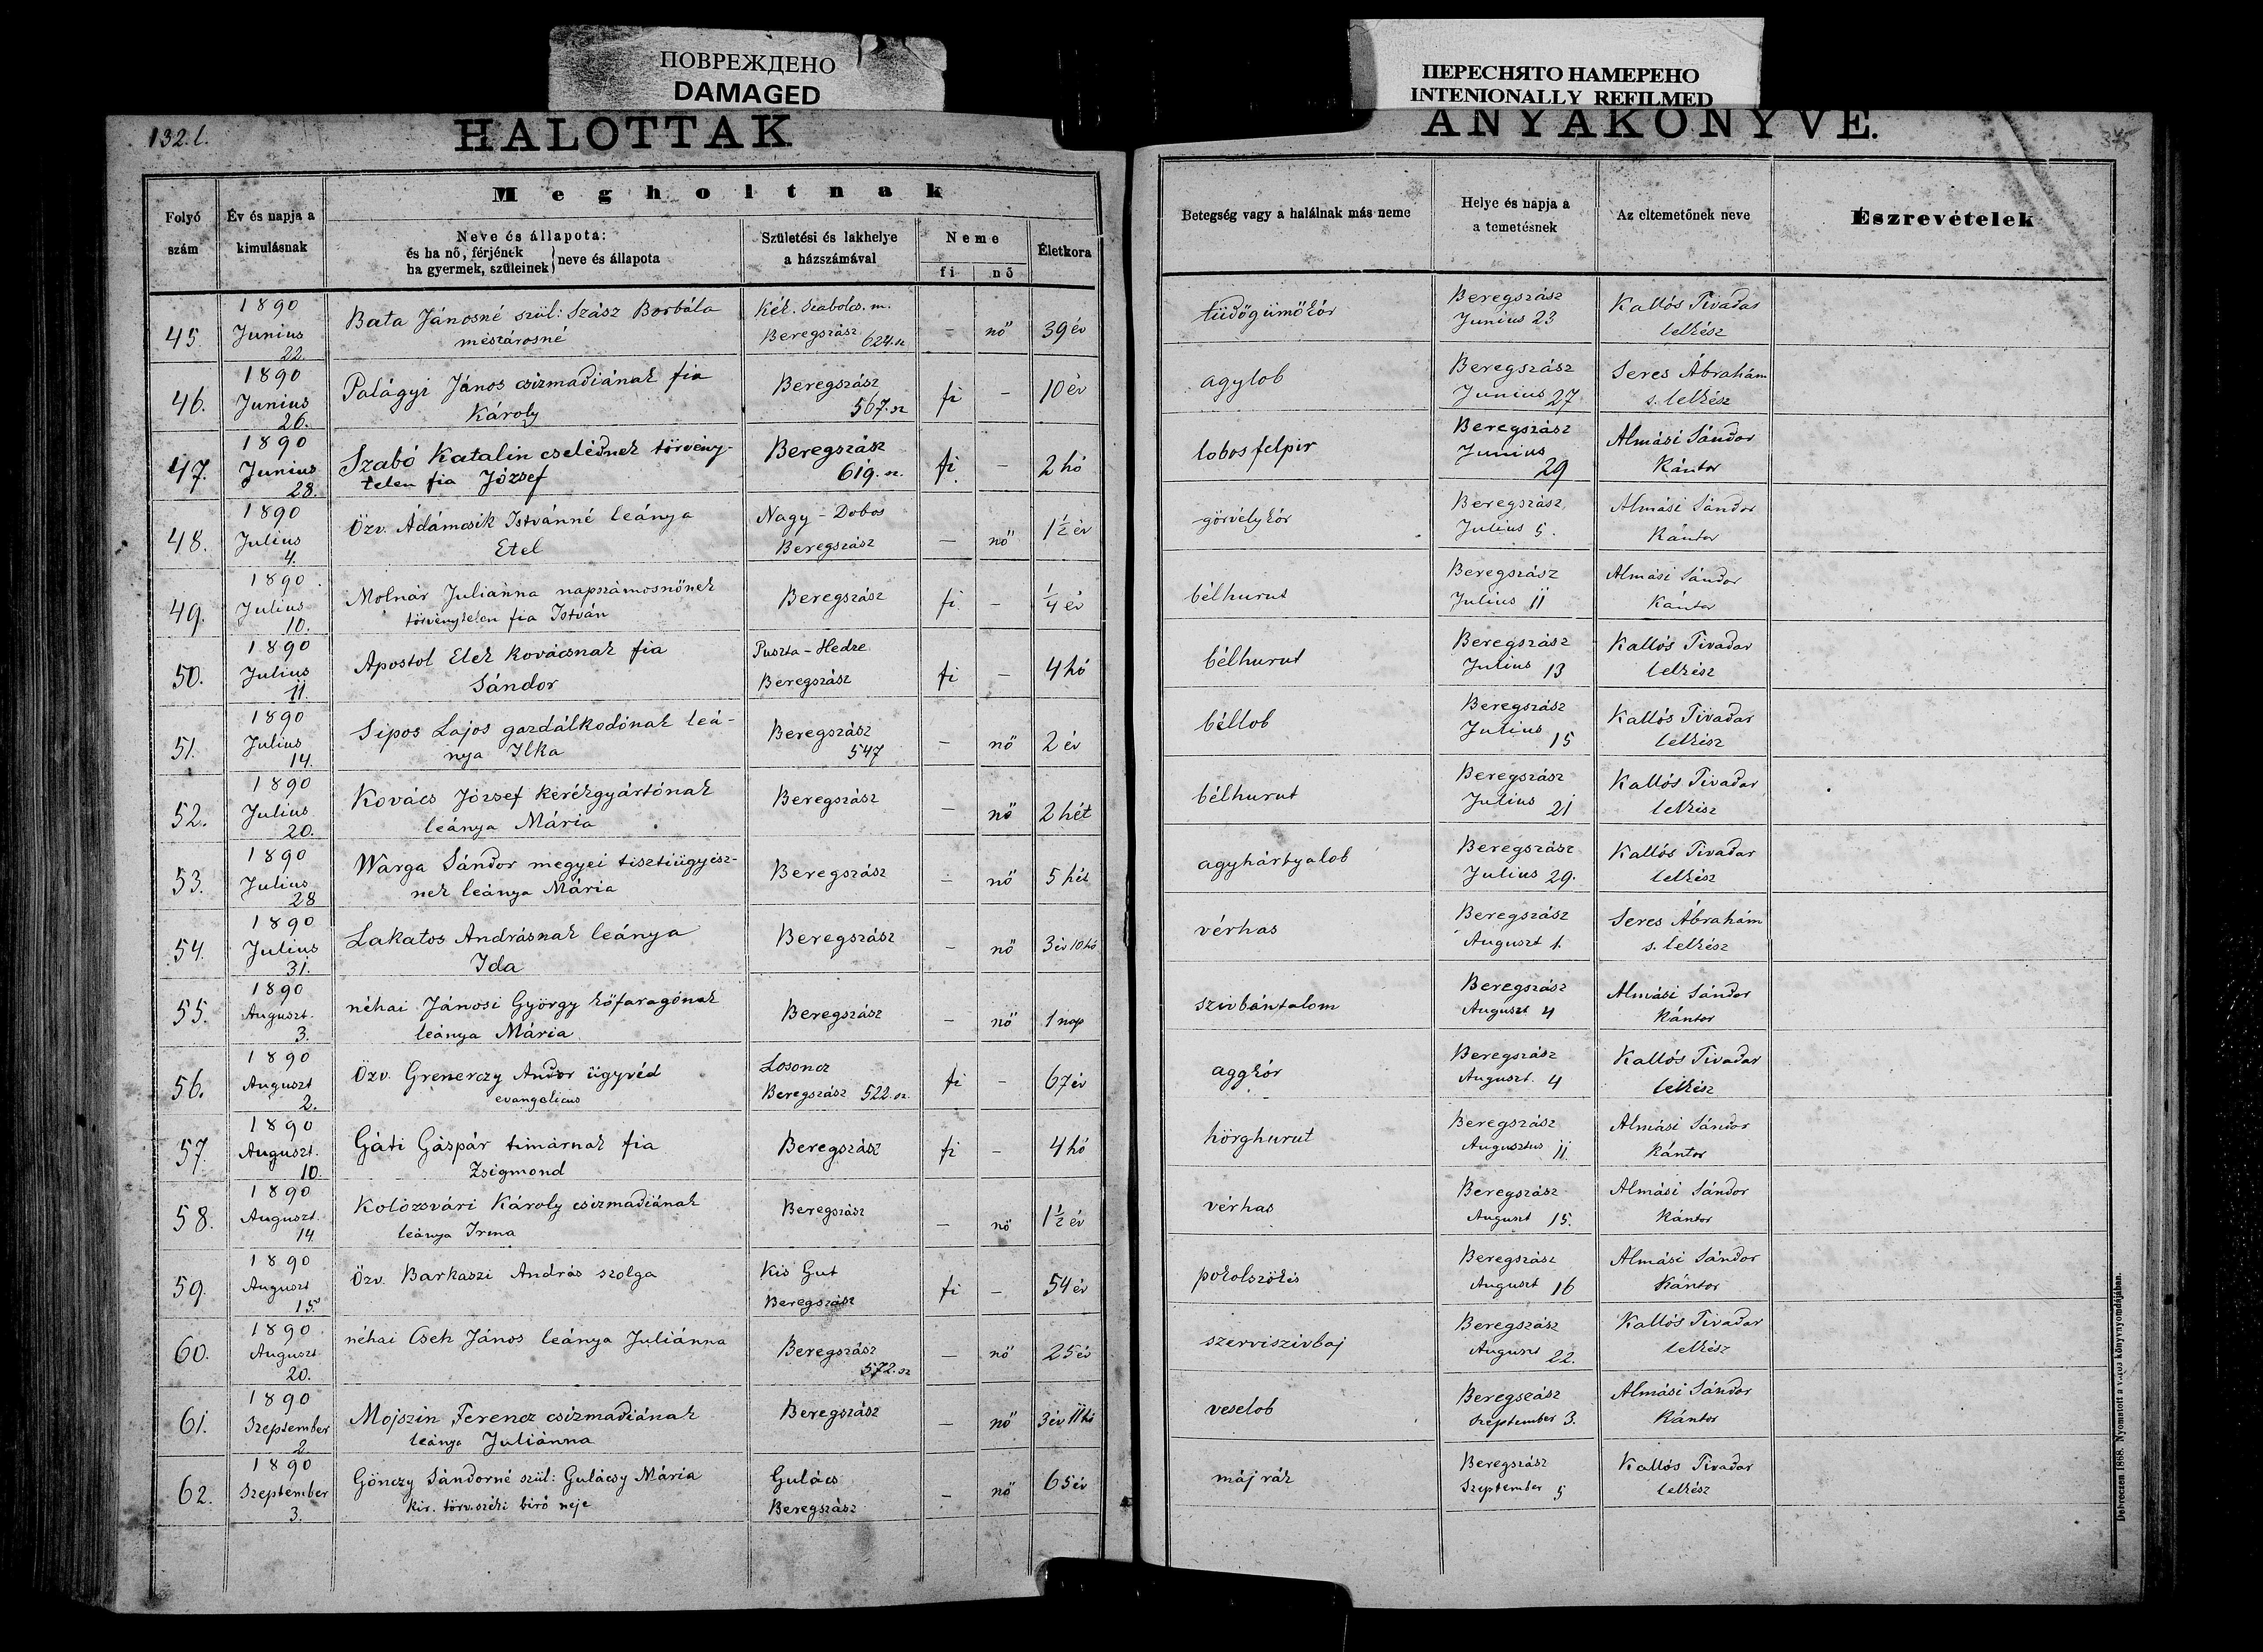 ПОВРЕЖДЕНО
DAMAGED
ПЕРЕСНЯТО НАМЕРЕНО
INTENIONALLY REFILMED
132.l.
HALOTTAK
ANYAKÖNYVE.
345
Folyó szám
Év és napja a kimulásnak
Megholtnak
Neve és állapota:
és ha nő, férjének
ha gyermek, szüleinek
neve és állapota
Születési és lakhelye
a házszámával
Neme
fi nő
Életkora
Betegség vagy a halálnak más neme
Helye és napja a
a temetésnek
Az eltemetőnek neve
Észrevételek
45. 1890 Junius 22. Bata Jánosné szül: Szász Borbála mészárosné Kék. Szabolcs. m. Beregszász 624. sz – nő 39 év tüdőgümőkór Beregszász Junius 23 Kallós Tivadar lelkész
46. 1890 Junius 26. Palágyi János csizmadiának fia Károly Beregszász 567. sz fi – 10 év agylob Beregszász Junius 27 Seres Ábrahám s. lelkész
47. 1890 Junius 28. Szabó Katalin cselédnek törvény- telen fia József Beregszász 619. sz. fi – 2 hó lobos felpir Beregszász Junius 29 Almási Sándor Kántor
48. 1890 Julius 4. Özv. Ádámcsik Istvánné leánya Etel Nagy-Dobos Beregszász – nő 1½ év görvélykór Beregszász Julius 5. Almási Sándor Kántor
49. 1890 Julius 10. Molnár Juliánna napszámosnőnek törvénytelen fia István Beregszász fi – ¼ év bélhurut Beregszász Julius 11 Almási Sándor Kántor
50. 1890 Julius 11. Apostol Elek kovácsnak fia Sándor Puszta-Hedre Beregszász fi – 4 hó bélhurut Beregszász Julius 13 Kallós Tivadar lelkész
51. 1890 Julius 14. Sipos Lajos gazdálkodónak leá- nya Ilka Beregszász 547 – nő 2 év béllob Beregszász Julius 15 Kallós Tivadar lelkész
52. 1890 Julius 20. Kovács József kerékgyártónak leánya Mária Beregszász – nő 2 hét bélhurut Beregszász Julius 21 Kallós Tivadar lelkész
53. 1890 Julius 28 Warga Sándor megyei tisztiügyész- nek leánya Mária Beregszász – nő 5 hét agyhártyalob Beregszász Julius 29. Kallós Tivadar lelkész
54. 1890 Julius 31. Lakatos Andrásnak leánya Ida Beregszász – nő 3 év 10 hó vérhas Beregszász Auguszt 1. Seres Ábrahám s. lelkész
55. 1890 Auguszt. 3. néhai Jánosi György kőfaragónak leánya Mária Beregszász – nő 1 nap szivbántalom Beregszász Auguszt 4 Almási Sándor Kántor
56. 1890 Auguszt 2. Özv. Grenerczy Andor ügyvéd evangelicus Losoncz Beregszász 522. sz. fi – 67 év aggkór Beregszász Auguszt. 4 Kallós Tivadar lelkész
57. 1890 Auguszt. 10. Gáti Gáspár timárnak fia Zsigmond Beregszász fi – 4 hó hörghurut Beregszász Augusztus 11. Almási Sándor Kántor
58. 1890 Auguszt. 14 Kolozsvári Károly csizmadiának leánya Irma Beregszász – nő 1½ év vérhas Beregszász Auguszt 15. Almási Sándor Kántor
59. 1890 Auguszt 15. Özv. Barkaszi András szolga Kis Gut Beregszász fi – 54 év pokolszökés Beregszász Auguszt 16 Almási Sándor Kántor
60. 1890 Auguszt 20. néhai Cseh János leánya Juliánna Beregszász 572. sz – nő 25 év szerviszivbaj Beregszász Auguszt 22. Kallós Tivadar lelkész
61. 1890 Szeptember 2. Mojszin Ferencz csizmadiának leánya Juliánna Beregszász – nő 3 év 11 hó veselob Beregszász Szeptember 3. Almási Sándor Kántor
62. 1890 Szeptember 3. Gönczy Sándorné szül: Gulácsy Mária kir. törv. széki biró neje Gulács Beregszász – nő 65 év máj rák Beregszász Szeptember 5 Kallós Tivadar lelkész
Debreczen 1888. Nyomatott a város könyvnyomdájában.